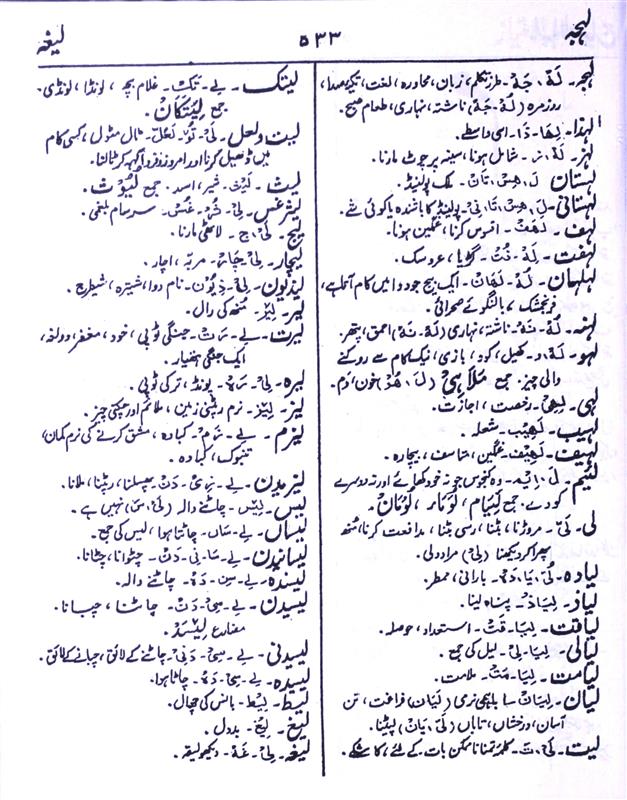 لہجہ
۵۳۳
لیغہ
لہجہ۔ لَہْ۔ جَہْ۔ طرز تکلم، زبان، محاورہ، لغت،
روزمرہ (لَہْ۔ جَہْ) ناشتہ، نہاری، طعام صبح۔
لہٰذا۔ لِھَا۔ ذَا۔ اسی واسطے۔
لہز۔ لَہْ۔ ز۔ شامل ہونا، سینہ پر چوٹ مارنا۔
لہستان۔ لَ۔ ہِسْ۔ تَانْ۔ ملک پولینڈ۔
لہستانی۔ لَ۔ ہِسْ۔ تَا۔ نِیْ۔ پولینڈ کا باشندہ یا کوئی شے۔
لہف۔ لَھَفْ۔ افسوس کرنا، غمگین ہونا۔
لہفت۔ لَہْ۔ فَتْ۔ گڑیا، عروسک۔
لہلہان۔ لَہْ۔ لَھَانْ۔ ایک بیج جو دوا میں کام آتا ہے،
فرنجمشک، بالنگوئے صحرائی۔
لہنہ۔ لَہْ۔ نَہْ۔ ناشتہ، نہاری (لَہْ۔ نَہْ) احمق، پتھر۔
لہو۔ لَہْ۔ و۔ کھیل، کود، بازی، نیک کام سے روکنے
والی چیز۔ جمع مَلَاہِیْ (لَ۔ ھُوْ) خون، دم۔
لہی۔ لَھِیْ۔ رخصت، اجازت۔
لہیب۔ لَھِیْب۔ شعلہ۔
لہیف۔ لَھِیْف۔ غمگین، متاسف، بیچارہ۔
لئیم۔ لَ۔ ئِیْم۔ وہ کنجوس جو نہ خود کھائے اور نہ دوسرے
کو دے۔ جمع لِئَام، لُؤَمَاء، لُؤْمَان۔
لی۔ لَیّ۔ مروڑنا، بٹنا، رسی بٹنا، مدافعت کرنا، منھ
پھرا کر دیکھنا (لِیْ) مراد ولی۔
لیادہ۔ لَیْ۔ یَا۔ دَہْ۔ بارانی، ممطر۔
لیاذ۔ لِیَاذْ۔ پناہ لینا۔
لیاقت۔ لِیَا۔ قَتْ۔ استعداد، حوصلہ۔
لیالی۔ لَیَا۔ لِیْ۔ لیل کی جمع۔
لیامت۔ لِیَا۔ مَتْ۔ ملامت۔
لیان۔ لِیَانْ سا باہمی نرمی (لَیَان) فراغت، تن
آسان، درخشاں، تاباں (لَیْ۔ یَانْ) لپٹنا۔
لیت۔ لَیْ۔ تَ۔ کلمۂ تمنا ناممکن بات کے لئے، کاشکے۔
لیتک۔ لے۔ تَکْ۔ غلام بچہ، لونڈا، لونڈی۔
جمع لِیْتَکَانْ۔
لیت ولعل۔ لَیْ۔ تُوْ۔ لَعَلّ۔ ٹال مٹول، کسی کام
میں ڈھیل کرنا اور امروز و فردا کہہ کر ٹالنا۔
لیث۔ لَیْثْ۔ شیر، اسد۔ جمع لُیُوْث۔
لیثرغس۔ لِیْ۔ ثَرْ۔ غُسْ۔ سرسام بلغمی۔
لیج۔ لَیْ۔ ج۔ لاٹھی مارنا۔
لیچار۔ لِیْ۔ چَارْ۔ مربہ، اچار۔
لیذیون۔ لِیْ۔ ذِیُوْن۔ نام دوا، شیترہ، شیطرج۔
لیر۔ لِیْرْ۔ منھ کی رال۔
لیرت۔ لے۔ رَتْ۔ جنگی ٹوپی، خود، مغفر، دولغہ،
ایک جنگی ہتھیار۔
لیرہ۔ لِیْ۔ رَہْ۔ پونڈ، ترکی ٹوپی۔
لیز۔ لِیْز۔ نرم ریتی زمین، ملائم اور چکنی چیز۔
لیزم۔ لے۔ زَم۔ کبادہ، مشق کرنے کی نرم کمان،
کبادہ۔
لیزیدن۔ لے۔ زی۔ دَنْ۔ پھسلنا، رپٹنا، ملانا۔
لیس۔ لِیْسْ۔ چاٹنے والا (لَیْ۔ سَ) نہیں ہے۔
لیساں۔ لے۔ سَاں۔ چاٹتا ہوا، لیس کی جمع۔
لیسانیدن۔ لے۔ سَا۔ نِیْ۔ دَنْ۔ چٹوانا، چٹانا۔
لیسندہ۔ لے۔ سِن۔ دَہْ۔ چاٹنے والا۔
لیسیدن۔ لے۔ سِیْ۔ دَنْ۔ چاٹنا، چبانا۔
مضارع لِیْسَدْ۔
لیسیدنی۔ لے۔ سِیْ۔ دَنِیْ۔ چاٹنے کے لائق، چبانے کے لائق۔
لیسیدہ۔ لے۔ سِیْ۔ دَہْ۔ چاٹا ہوا۔
لیط۔ لِیْط۔ بانس کی چھال۔
لیغ۔ لِیْغْ۔ بددل۔
لیغہ۔ لِیْ۔ غَہْ۔ دیکھو لیقہ۔